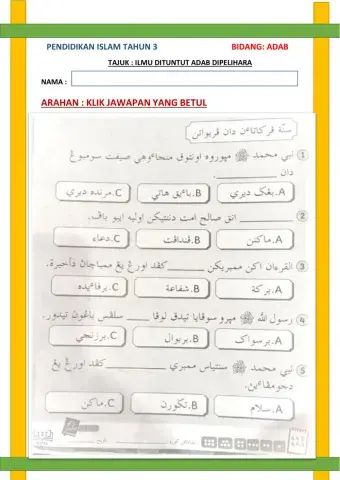 PENDIDIKAN ISLAM TAHUN 3 BIDANG: ADAB
TAJUK : ILMU DITUNTUT ADAB DIPELIHARA
NAMA :
ARAHAN : KLIK JAWAPAN YANG BETUL
سنّة ڤركاتاءن دان ڤربواتن
1 نبي محمد ﷺ مڽوروه اونتوق منجاءوهي صيفت سومبوڠ
دان ________.
A. بڠݢ ديري B. باءيق هاتي C. مرنده ديري
2 ________ انق صالح امت دننتيكن اوليه ايبو باڤ.
A. ماكنن B. ڤنداڤت C. دعاء
3 القرءان اكن ممبريكن ________ كڤد اورڠ يڠ ممباچاڽ دأخيرة.
A. بركة B. شفاعة C. برفاءيده
4 رسول الله ﷺ سوڤايا تيدق لوڤا ________ سلڤس باڠون تيدور.
A. برسواك B. بربوال C.
5 نبي محمد ﷺ سنتياس ممبري ________ كڤد اورڠ يڠ
دجومڤاءين.
A. سلام B. C. ماكن